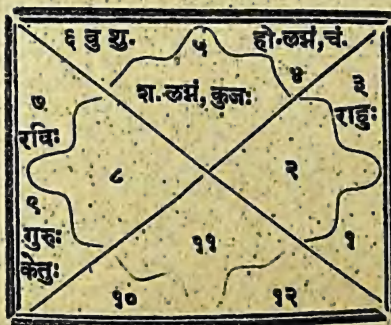 ६ बु शु. ५ हो.लग्नं,चं.
४
श.लग्नं, कुजः ३
राहुः
७
रविः
८ २
९
गुरुः
केतुः
११ १
१० १२